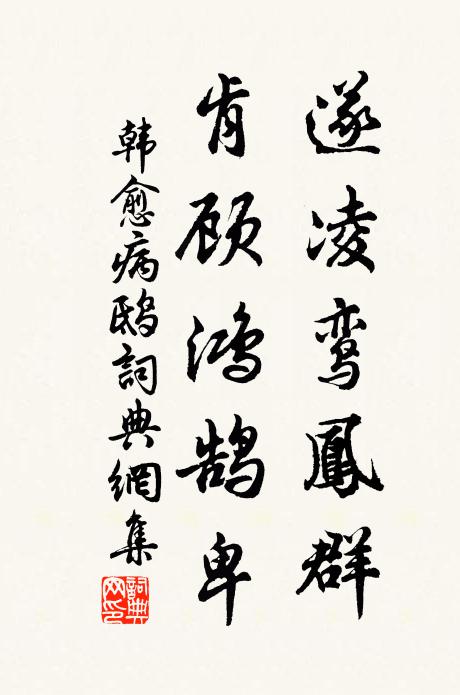 遂凌鸾鳳群
肯顾鸿鹄卑
韩愈病鸱詞典網集
詞典网印